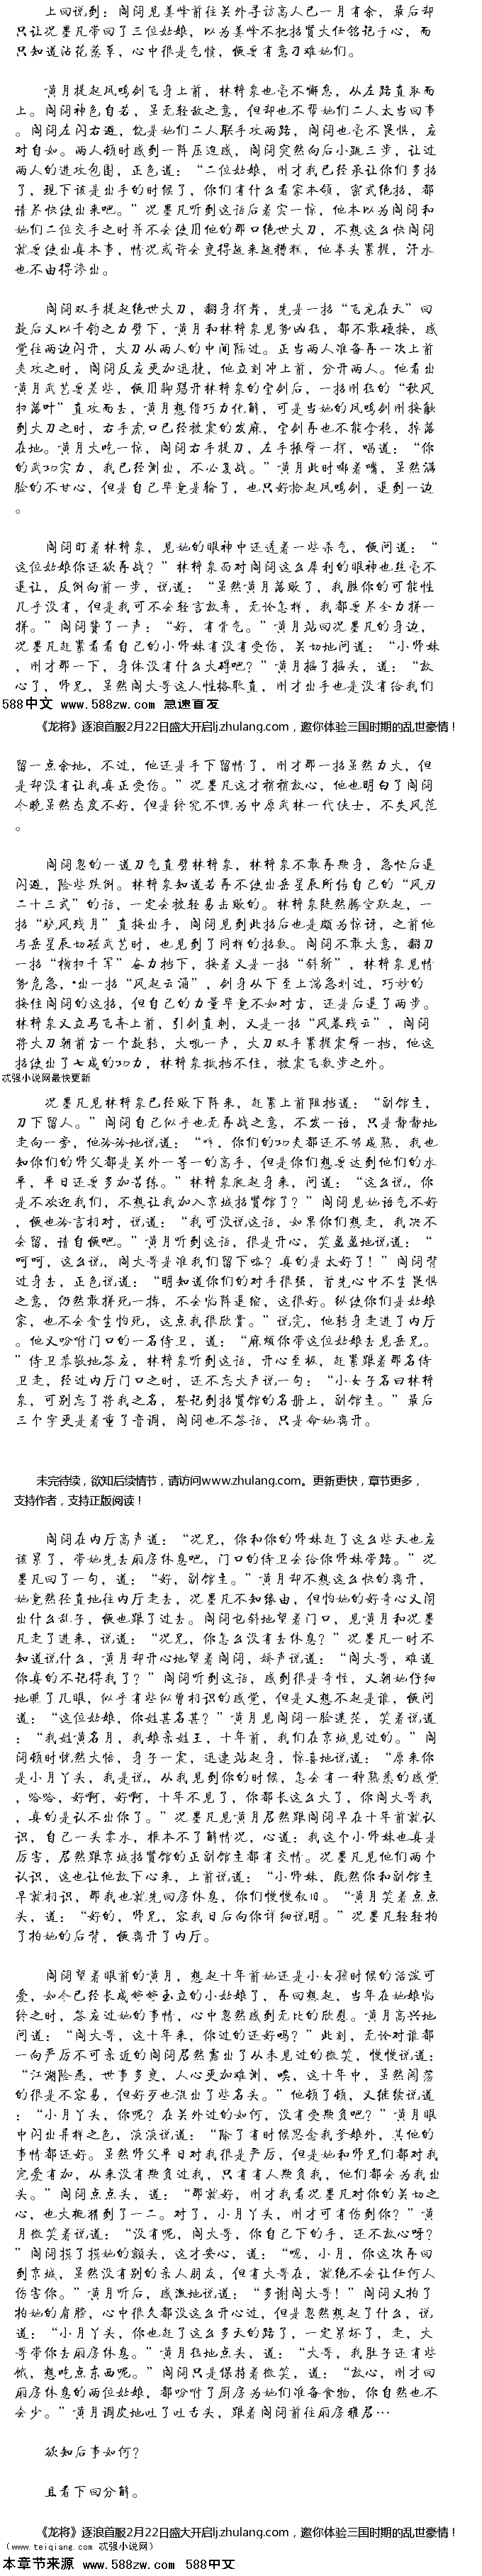 上回说到：阁阔见姜峰前往关外寻访高人已一月有余，最后却
只让况墨凡带回了三位姑娘，以为姜峰不把招贤大任铭记于心，而
只知道沾花惹草，心中很是气愤，便要有意刁难她们。
黄月提起凤鸣剑飞身上前，林梓泉也毫不懈怠，从左路直取而
上。阁阔神色自若，虽无轻敌之意，但却也不帮她们二人太当回事
。阁阔左闪右避，饶是她们二人联手攻两路，阁阔也毫不畏惧，应
对自如。两人顿时感到一阵压迫感，阁阔突然向后小跳三步，让过
两人的进攻包围，正色道：“二位姑娘，刚才我已经承让你们多招
了，现下该是出手的时候了，你们有什么看家本领，密式绝招，都
请尽快使出来吧。”况墨凡听到这话后着实一惊，他本以为阁阔和
她们二位交手之时并不会使用他的那口绝世大刀，不想这么快阁阔
就要使出真本事，情况或许会变得越来越糟糕，他拳头紧握，汗水
也不由得渗出。
阁阔双手提起绝世大刀，翻身挥舞，先是一招“飞龙在天”回
旋后又以千钧之力劈下，黄月和林梓泉见势凶猛，都不敢硬接，感
觉往两边闪开，大刀从两人的中间陷过。正当两人准备再一次上前
夹攻之时，阁阔反应更加迅捷，他立刻冲上前，分开两人。他看出
黄月武艺要差些，便用脚踢开林梓泉的宝剑后，一招刚猛的“秋风
扫落叶”直攻而去，黄月想借巧力化解，可是当她的凤鸣剑刚接触
到大刀之时，右手虎口已经被震的发麻，宝剑再也不能拿稳，掉落
在地。黄月大吃一惊，阁阔右手提刀，左手振臂一挥，喝道：“你
的武功实力，我已经测出，不必复战。”黄月此时嘟着嘴，虽然满
脸的不甘心，但是自己毕竟是输了，也只好拾起凤鸣剑，退到一边
。
阁阔盯着林梓泉，见她的眼神中还透着一些杀气，便问道：“
这位姑娘你还欲再战？”林梓泉面对阁阔这么犀利的眼神也丝毫不
退让，反倒向前一步，说道：“虽然黄月落败了，我胜你的可能性
几乎没有，但是我可不会轻言放弃，无论怎样，我都要尽全力拼一
拼。”阁阔赞了一声：“好，有骨气。”黄月站回况墨凡的身边，
况墨凡赶紧看看自己的小师妹有没有受伤，关切地问道：“小师妹
，刚才那一下，身体没有什么大碍吧？”黄月摇了摇头，道：“放
心了，师兄，虽然阁大哥这人性格耿直，刚才出手也是没有给我们
588中文 www.588zw.com 急速首发
《龙将》逐浪首服2月22日盛大开启lj.zhulang.com，邀你体验三国时期的乱世豪情！
留一点余地，不过，他还是手下留情了，刚才那一招虽然力大，但
是却没有让我真正受伤。”况墨凡这才稍稍放心，他也明白了阁阔
今晚虽然态度不好，但是终究不愧为中原武林一代侠士，不失风范
。
阁阔忽的一道刀气直劈林梓泉，林梓泉不敢再欺身，急忙后退
闪避，险些跌倒。林梓泉知道若再不使出岳星辰所传自己的“风刃
二十三式”的话，一定会被轻易击败的。林梓泉陡然腾空跃起，一
招“驭风残月”直接出手，阁阔见到此招后也是颇为惊讶，之前他
与岳星辰切磋武艺时，也见到了同样的招数。阁阔不敢大意，翻刀
一招“横扫千军”奋力挡下，接着又是一招“斜斩”，林梓泉见情
势危急，出一招“风起云涌”，剑身从下至上湍急划过，巧妙的
接住阁阔的这招，但自己的力量毕竟不如对方，还是后退了两步。
林梓泉又立马飞奔上前，引剑直刺，又是一招“风卷残云”，阁阔
将大刀朝前方一个旋转，大吼一声，大刀双手紧握震臂一挡，他这
招使出了七成的功力，林梓泉抵挡不住，被震飞数步之外。
忒强小说网最快更新
况墨凡见林梓泉已经败下阵来，赶紧上前阻挡道：“副馆主，
刀下留人。”阁阔自己似乎也无再战之意，不发一语，只是静静地
走向一旁，他冷冷地说道：“哼，你们的功夫都还不够成熟，我也
知你们的师父都是关外一等一的高手，但是你们想要达到他们的水
平，平日还要多加苦练。”林梓泉爬起身来，问道：“这么说，你
是不欢迎我们，不想让我加入京城招贤馆了？”阁阔见她语气不好
，便也冷言相对，说道：“我可没说这话，如果你们想走，我决不
会留，请自便吧。”黄月听到这话，很是开心，笑盈盈地说道：“
呵呵，这么说，阁大哥是准我们留下咯？真的是太好了！”阁阔背
过身去，正色说道：“明知道你们的对手很强，首先心中不生畏惧
之意，仍然敢拼死一搏，不会临阵退缩，这很好。纵使你们是姑娘
家，也不会贪生怕死，这点我很欣赏。”说完，他转身走进了内厅
。他又吩咐门口的一名侍卫，道：“麻烦你带这位姑娘去见岳兄。
”侍卫恭敬地答应，林梓泉听到这话，开心至极，赶紧跟着那名侍
卫走，经过内厅门口之时，还不忘大声说一句：“小女子名曰林梓
泉，可别忘了将我之名，登记到招贤馆的名册上，副馆主。”最后
三个字更是着重了音调，阁阔也不答话，只是命她离开。
未完待续，欲知后续情节，请访问www.zhulang.com。更新更快，章节更多，
支持作者，支持正版阅读！
阁阔在内厅高声道：“况兄，你和你的师妹赶了这么些天也应
该累了，带她先去厢房休息吧，门口的侍卫会给你师妹带路。”况
墨凡回了一句，道：“好，副馆主。”黄月却不想这么快的离开，
她竟然径直地往内厅走去，况墨凡不知缘由，但怕她的好奇心又闹
出什么乱子，便也跟了过去。阁阔也斜地望着门口，见黄月和况墨
凡走了进来，说道：“况兄，你怎么没有去休息？”况墨凡一时不
知道说什么，黄月却开心地望着阁阔，娇声说道：“阁大哥，难道
你真的不记得我了？”阁阔听到这话，感到很是奇怪，又朝她仔细
地瞧了几眼，似乎有些似曾相识的感觉，但是又想不起是谁，便问
道：“这位姑娘，你姓甚名甚？”黄月见阁阔一脸迷茫，笑着说道
：“我姓黄名月，我娘亲姓王，十年前，我们在京城见过的。”阁
阔顿时恍然大悟，身子一震，迅速站起身，惊喜地说道：“原来你
是小月丫头，我是说，从我见到你的时候，怎会有一种熟悉的感觉
，哈哈，好啊，好啊，十年不见了，你都长这么大了，你阁大哥我
，真的是认不出你了。”况墨凡见黄月居然跟阁阔早在十年前就认
识，自己一头雾水，根本不了解情况，心道：我这个小师妹也真是
厉害，居然跟京城招贤馆的正副馆主都有交情。况墨凡见他们两个
认识，这也让他放下心来，上前说道：“小师妹，既然你和副馆主
早就相识，那我也就先回房休息，你们慢慢叙旧。“黄月笑着点点
头，道：“好的，师兄，容我日后向你详细说明。”况墨凡轻轻拍
了拍她的后背，便离开了内厅。
阁阔望着眼前的黄月，想起十年前她还是小女孩时候的活泼可
爱，如今已经长成婷婷玉立的小姑娘了，再回想起，当年在她娘临
终之时，答应过她的事情，心中忽然感到无比的欣慰。黄月高兴地
问道：“阁大哥，这十年来，你过的还好吗？”此刻，无论对谁都
一向严厉不可亲近的阁阔居然露出了从未见过的微笑，慢慢说道：
“江湖险恶，世事多变，人心更加难测，唉，这十年中，虽然闯荡
的很是不容易，但好歹也混出了些名头。”他顿了顿，又继续说道
：“小月丫头，你呢？在关外过的如何，没有受欺负吧？”黄月眼
中闪出异样之色，淡淡说道：“除了有时候思念我爹娘外，其他的
事情都还好。虽然师父平日对我很是严厉，但是她和师兄们都对我
宠爱有加，从来没有欺负过我，只有有人欺负我，他们都会为我出
头。”阁阔点点头，道：“那就好，刚才我看况墨凡对你的关切之
心，也大概猜到了一二。对了，小月丫头，刚才可有伤到你？”黄
月微笑着说道：“没有呢，阁大哥，你自己下的手，还不放心呀？
”阁阔摸了摸她的额头，这才安心，道：“嗯，小月，你这次再回
到京城，虽然没有别的亲人朋友，但有大哥在，就绝不会让任何人
伤害你。”黄月听后，感激地说道：“多谢阁大哥！”阁阔又拍了
拍她的肩膀，心中很久都没这么开心过，但是忽然想起了什么，说
道：“小月丫头，你也赶了这么多天的路了，一定累坏了，走，大
哥带你去厢房休息。”黄月猛地点头，道：“大哥，我肚子还有些
饿，想吃点东西呢。”阁阔只是保持着微笑，道：“放心，刚才回
厢房休息的两位姑娘，都吩咐了厨房为她们准备食物，你自然也不
会少。”黄月调皮地吐了吐舌头，跟着阁阔前往厢房雅居…
欲知后事如何？
且看下回分解。
《龙将》逐浪首服2月22日盛大开启lj.zhulang.com，邀你体验三国时期的乱世豪情！
（www.teiqiang.com 忒强小说网）
本章节来源 www.588zw.com 588中文